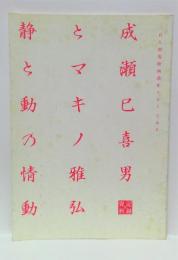 成瀬巳喜男
とマキノ雅弘
静と動の情動